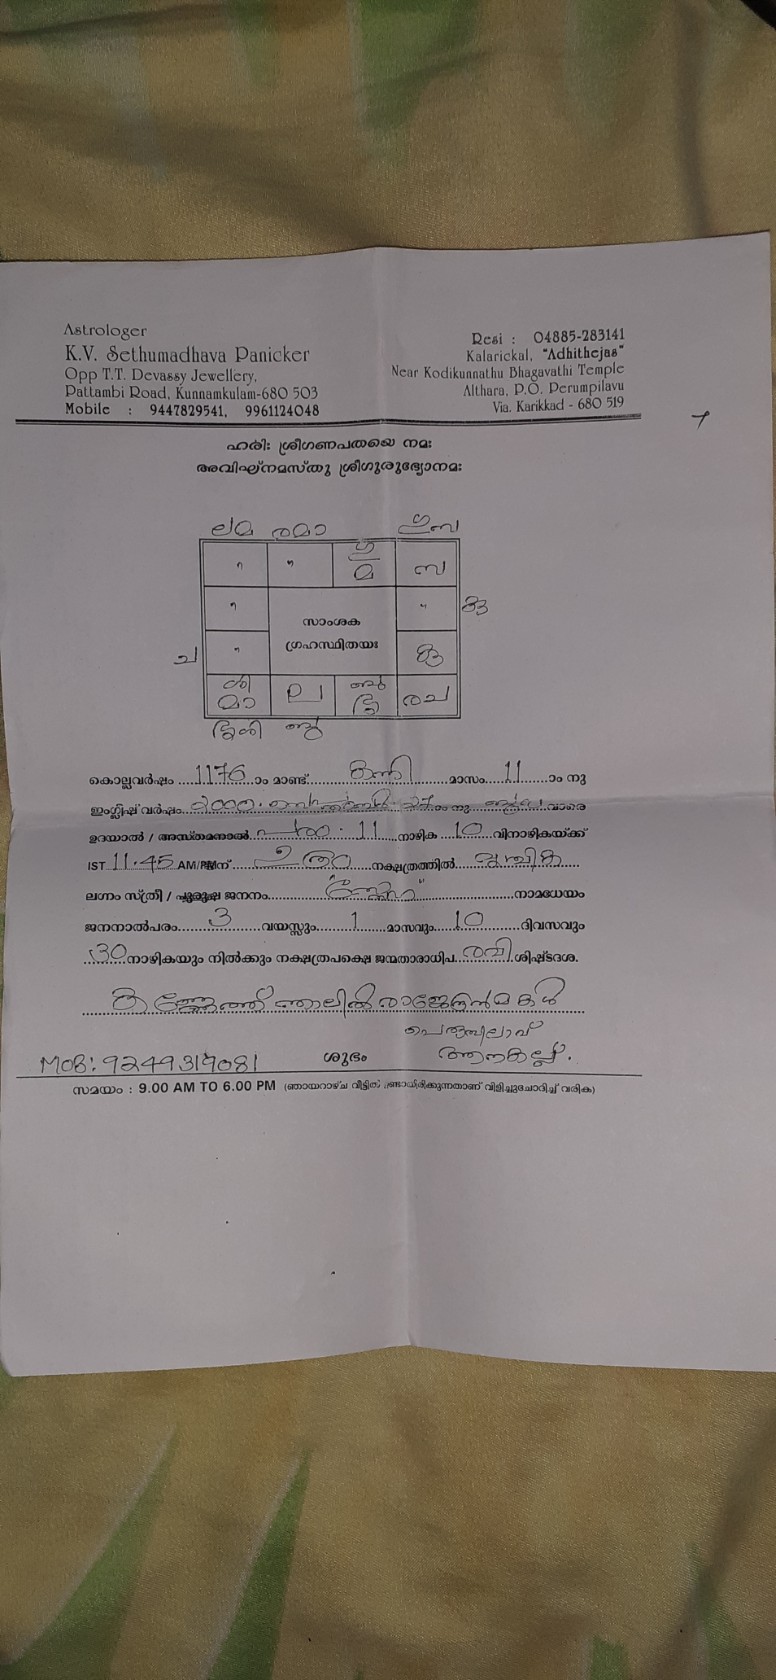 Astrologer
K.V. Sethumadhava Panicker
Opp T.T. Devassy Jewellery,
Pattambi Road, Kunnamkulam-680 503
Mobile : 9447829541, 9961124048
Resi : 04885-283141
Kalarickal, "Adhithejas"
Near Kodikunnathu Bhagavathi Temple
Althara, P.O. Perumpilavu
Via. Karikkad - 680 519
ഹരിഃ ശ്രീഗണപതയെ നമഃ
അവിഘ്നമസ്തു ശ്രീഗുരുഭ്യോനമഃ
ലമ രമാ ഗു ബ
ഗു മ ബ
സാംശക
ഗ്രഹസ്ഥിതയഃ
ച
ശി മാ ബു രച
കൊല്ലവർഷം 1176 ാം മാണ്ട് കന്നി മാസം 11 ാം നു
ഇംഗ്ലീഷ് വർഷം 2000 സെപ്തംബർ 27 ാം നു വാരെ
ഉദയാൽ / അസ്തമനാൽ 11 നാഴിക 10 വിനാഴികയ്ക്ക്
IST 11.45 AM/PM ന് ഉത്രം നക്ഷത്രത്തിൽ വൃശ്ചിക
ലഗ്നം സ്ത്രീ / പുരുഷ ജനനം നാമധേയം
ജനനാൽപരം 3 വയസ്സും 1 മാസവും 10 ദിവസവും
30 നാഴികയും നിൽക്കും നക്ഷത്രപക്ഷെ ജന്മതാരാധിപ രവി ശിഷ്ടദശ.
രാജേന്ദ്രൻ മകൾ
പെരുമ്പിലാവ്
ആനകല്ല്.
MOB: 9249319081 ശുഭം
സമയം : 9.00 AM TO 6.00 PM (ഞായറാഴ്ച വീട്ടിൽ ഉണ്ടായിരിക്കുന്നതാണ് വിളിച്ചുചോദിച്ച് വരിക)